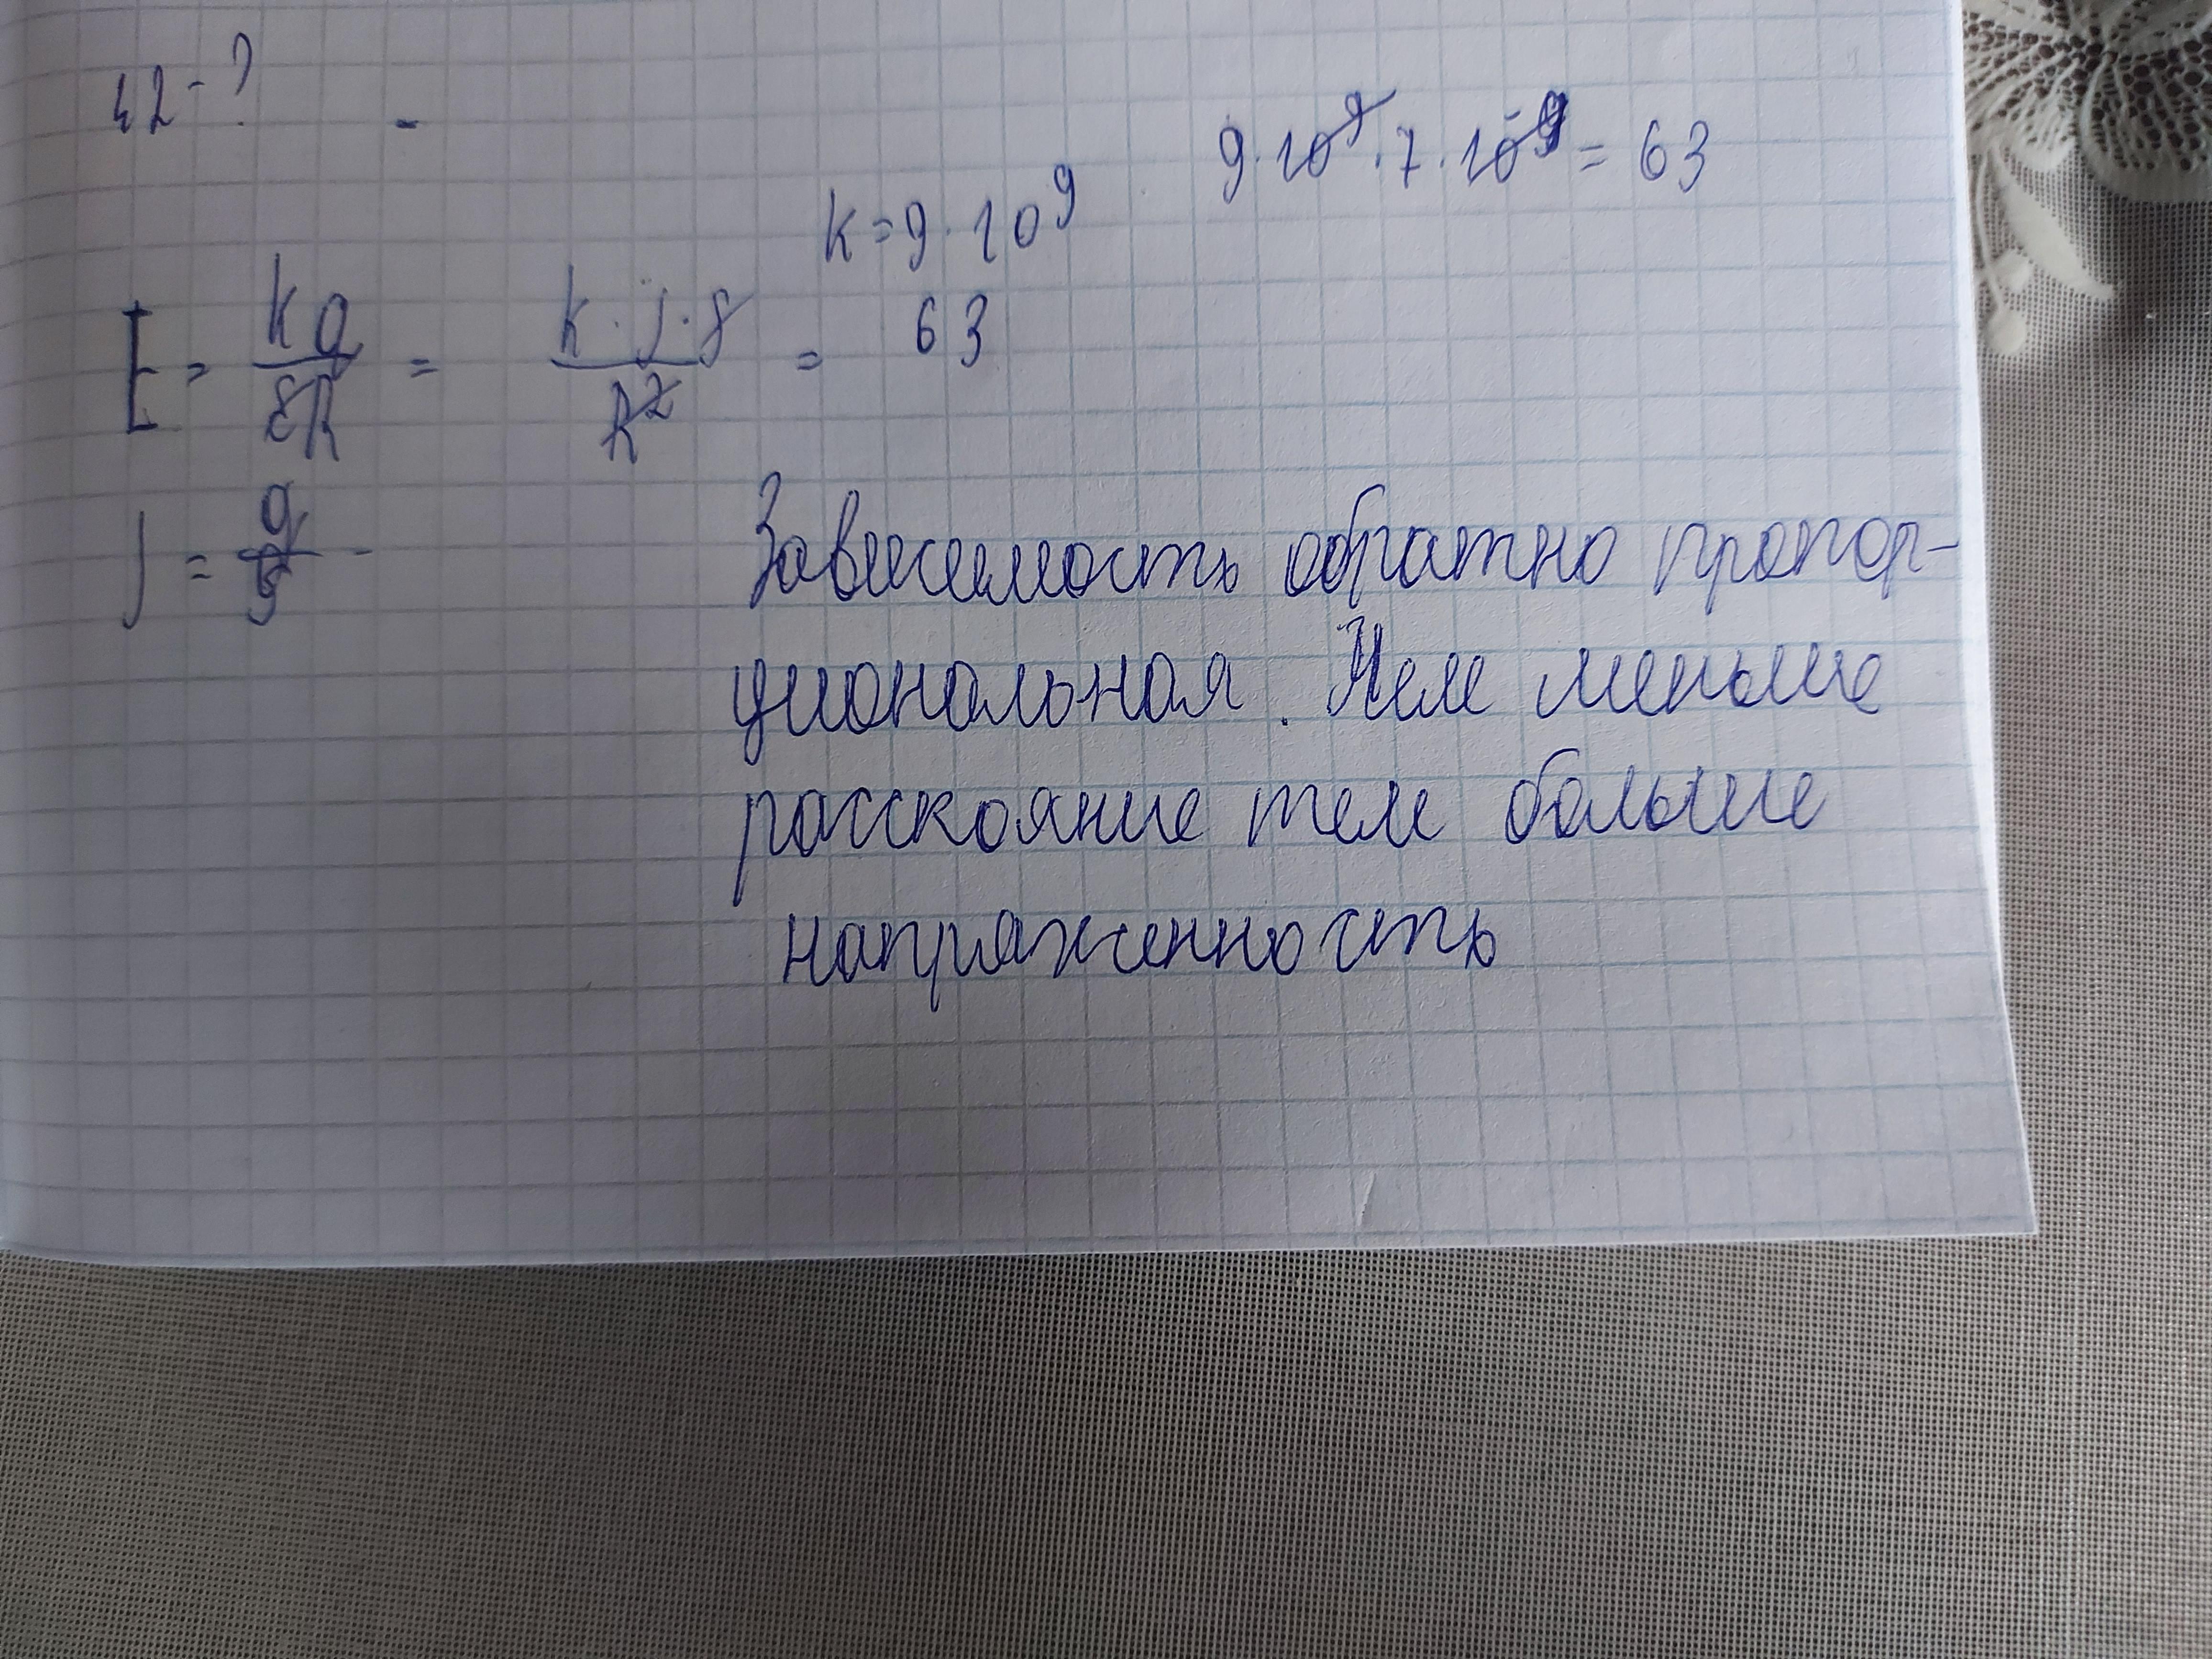 42-?
-
9·10⁹·7·10⁻⁹ = 63
k=9·10⁹
E = kq/εR = k·j·8/R² = 63
j = q/S -
Зависимость обратно пропор-
циональная. Чем меньше
расскояние тем больше
напряженность